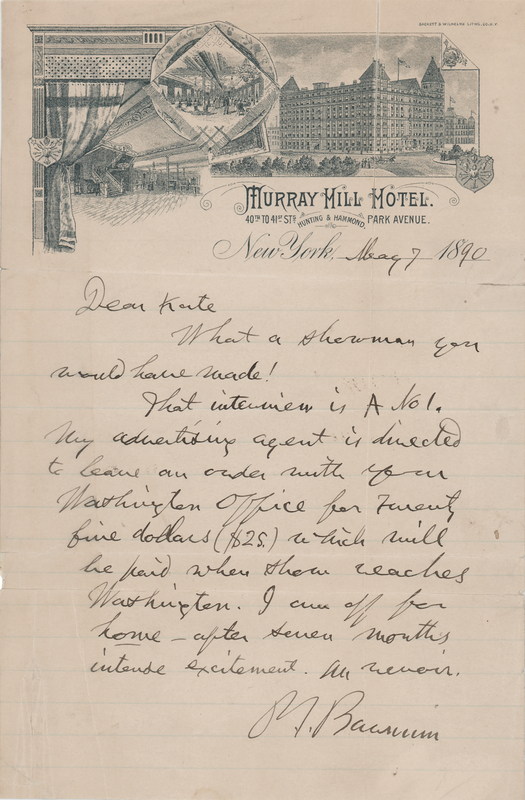 SACKETT & WILHELMS LITHO. CO. N.Y.
MURRAY HILL HOTEL.
40TH TO 41ST STS. HUNTING & HAMMOND, PARK AVENUE.
New York, May 7 1890
Dear Kate
What a showman you
would have made!
That interview is A No 1.
My advertising agent is directed
to leave an order with your
Washington Office for Twenty
five dollars ($25.) which will
be paid when show reaches
Washington. I am off for
home – after seven months
intense excitement. Au revoir.
P. T. Barnum